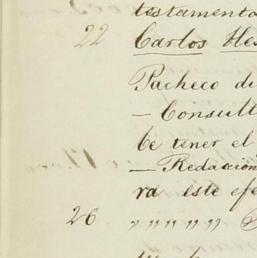 testamento
22 Carlos Hes
Pacheco di
— Consult
be tener el
— Redacción
ra este efe
26 " " " " "